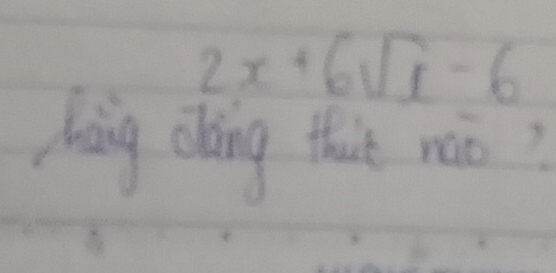 2x + 6√x - 6
hằng đẳng thức nào ?